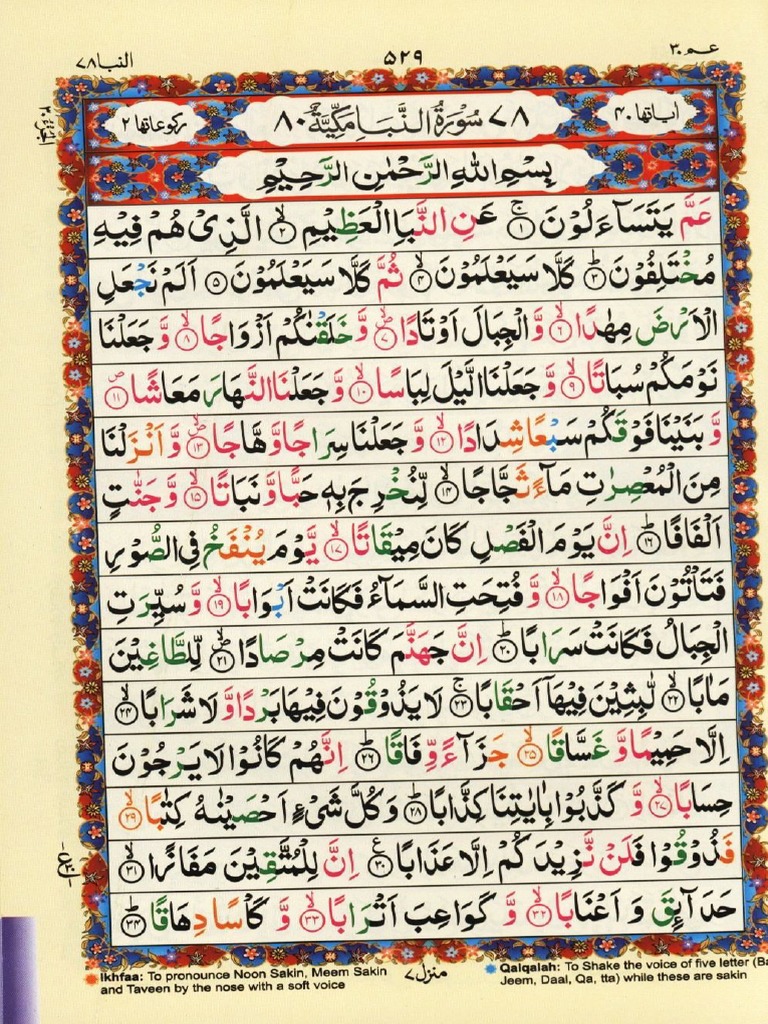 عـم ٣٠
٥٢٩
النبا ٧٨
اٰیاتها ٤٠
٧٨ سُوْرَةُ النَّبَاِ مَكِّیَّةٌ ٨٠
رکوعاتها ٢
بِسْمِ اللهِ الرَّحْمٰنِ الرَّحِیْمِ
عَمَّ یَتَسَآءَلُوْنَ ۚ﴿١﴾ عَنِ النَّبَاِ الْعَظِیْمِ ۙ﴿٢﴾ الَّذِیْ هُمْ فِیْهِ
مُخْتَلِفُوْنَ ؕ﴿٣﴾ كَلَّا سَیَعْلَمُوْنَ ۙ﴿٤﴾ ثُمَّ كَلَّا سَیَعْلَمُوْنَ ﴿٥﴾ اَلَمْ نَجْعَلِ
الْاَرْضَ مِهٰدًا ۙ﴿٦﴾ وَّ الْجِبَالَ اَوْتَادًا ۪ۙ﴿٧﴾ وَّ خَلَقْنٰكُمْ اَزْوَاجًا ۙ﴿٨﴾ وَّ جَعَلْنَا
نَوْمَكُمْ سُبَاتًا ۙ﴿٩﴾ وَّ جَعَلْنَا الَّیْلَ لِبَاسًا ۙ﴿١٠﴾ وَّ جَعَلْنَا النَّهَارَ مَعَاشًا ۪﴿١١﴾
وَّ بَنَیْنَا فَوْقَكُمْ سَبْعًا شِدَادًا ۙ﴿١٢﴾ وَّ جَعَلْنَا سِرَاجًا وَّهَّاجًا ۪ۙ﴿١٣﴾ وَّ اَنْزَلْنَا
مِنَ الْمُعْصِرٰتِ مَآءً ثَجَّاجًا ۙ﴿١٤﴾ لِّنُخْرِجَ بِهٖ حَبًّا وَّ نَبَاتًا ۙ﴿١٥﴾ وَّ جَنّٰتٍ
اَلْفَافًا ؕ﴿١٦﴾ اِنَّ یَوْمَ الْفَصْلِ كَانَ مِیْقَاتًا ۙ﴿١٧﴾ یَّوْمَ یُنْفَخُ فِی الصُّوْرِ
فَتَاْتُوْنَ اَفْوَاجًا ۙ﴿١٨﴾ وَّ فُتِحَتِ السَّمَآءُ فَكَانَتْ اَبْوَابًا ۙ﴿١٩﴾ وَّ سُیِّرَتِ
الْجِبَالُ فَكَانَتْ سَرَابًا ؕ﴿٢٠﴾ اِنَّ جَهَنَّمَ كَانَتْ مِرْصَادًا ۪ۙ﴿٢١﴾ لِّلطَّاغِیْنَ
مَاٰبًا ۙ﴿٢٢﴾ لّٰبِثِیْنَ فِیْهَاۤ اَحْقَابًا ۚ﴿٢٣﴾ لَا یَذُوْقُوْنَ فِیْهَا بَرْدًا وَّ لَا شَرَابًا ۙ﴿٢٤﴾
اِلَّا حَمِیْمًا وَّ غَسَّاقًا ۙ﴿٢٥﴾ جَزَآءً وِّفَاقًا ؕ﴿٢٦﴾ اِنَّهُمْ كَانُوْا لَا یَرْجُوْنَ
حِسَابًا ۙ﴿٢٧﴾ وَّ كَذَّبُوْا بِاٰیٰتِنَا كِذَّابًا ؕ﴿٢٨﴾ وَ كُلَّ شَیْءٍ اَحْصَیْنٰهُ كِتٰبًا ۙ﴿٢٩﴾
فَذُوْقُوْا فَلَنْ نَّزِیْدَكُمْ اِلَّا عَذَابًا ﴿٣٠﴾ اِنَّ لِلْمُتَّقِیْنَ مَفَازًا ۙ﴿٣١﴾
حَدَآىِٕقَ وَ اَعْنَابًا ۙ﴿٣٢﴾ وَّ كَوَاعِبَ اَتْرَابًا ۙ﴿٣٣﴾ وَّ كَاْسًا دِهَاقًا ؕ﴿٣٤﴾
Ikhfaa: To pronounce Noon Sakin, Meem Sakin
and Taveen by the nose with a soft voice
منزل ٧
Qalqalah: To Shake the voice of five letter (Ba
Jeem, Daal, Qa, tta) while these are sakin